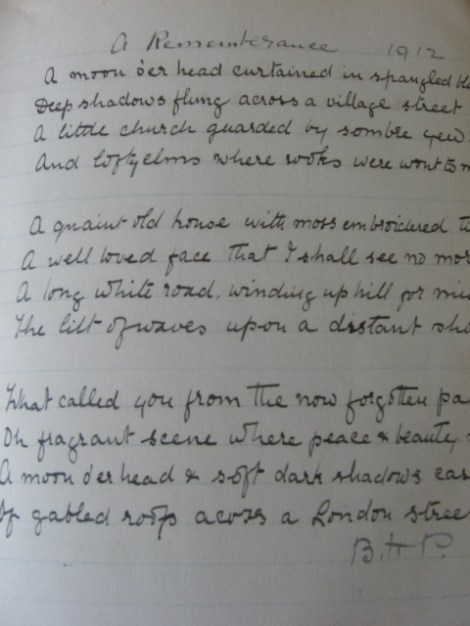 A Rememberance 1912
A moon o'er head curtained in spangled
Deep shadows flung across a village street
A little church guarded by sombre yew
And lofty elms where rooks were wont to
A quaint old house with moss embroidered
A well loved face that I shall see no mor
A long white road, winding up hill for
The lilt of waves upon a distant sho
What called you from the now forgotten pa
Oh fragrant scene where peace & beauty
A moon o'er head & soft dark shadows cas
Of gabled roofs across a London stree
B.H.P.